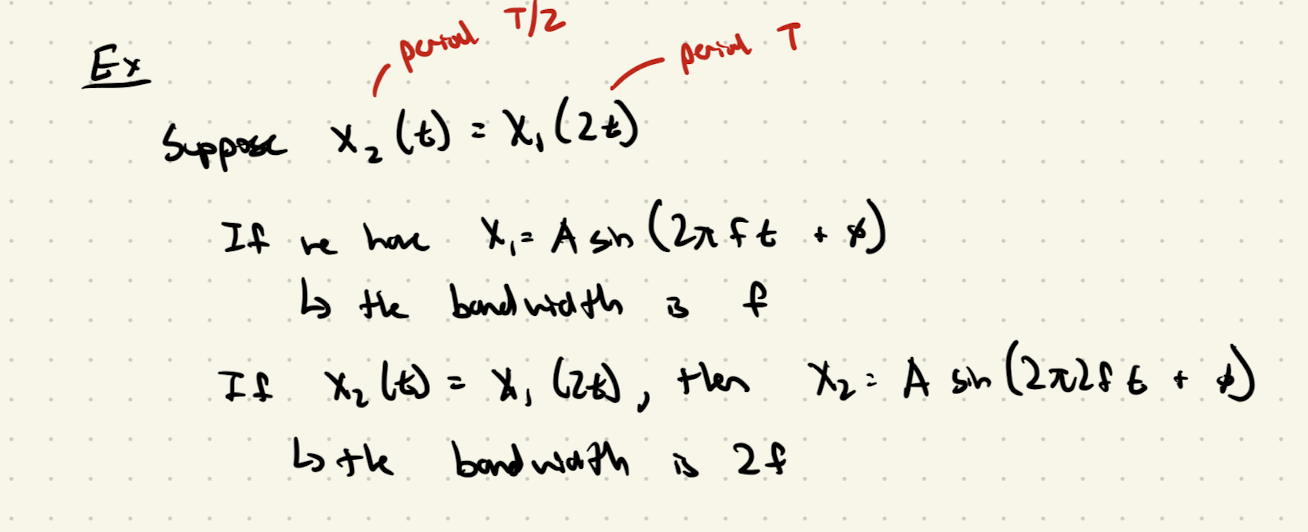 period T/2
period T
Ex
Suppose x₂(t) = x₁(2t)
If we have x₁ = A sin(2π f t + φ)
↳ the bandwidth is f
If x₂(t) = x₁(2t), then x₂ = A sin(2π2f t + φ)
↳ the bandwidth is 2f